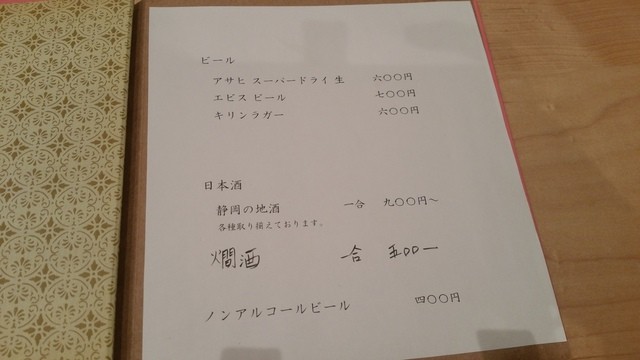 ビール
アサヒ スーパードライ 生 六〇〇円
エビス ビール 七〇〇円
キリンラガー 六〇〇円
日本酒
静岡の地酒 一合 九〇〇円～
各種取り揃えております。
燗酒 一合 五〇〇ー
ノンアルコールビール 四〇〇円